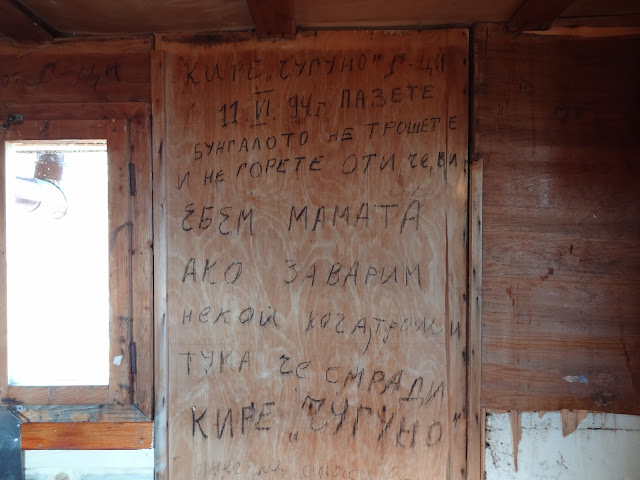 КИРЕ „ЧУГУНО" Г-ЦИ
11 VI. 94г ПАЗЕТЕ
БУНГАЛОТО НЕ ТРОШЕТЕ
И НЕ ГОРЕТЕ ОТИ че ви
ЕБЕМ МАМАТА
АКО ЗАВАРИМ
некой кога троши
ТУКА че СМРАДИ
КИРЕ „ЧУГУНО"
Г-ЦИ